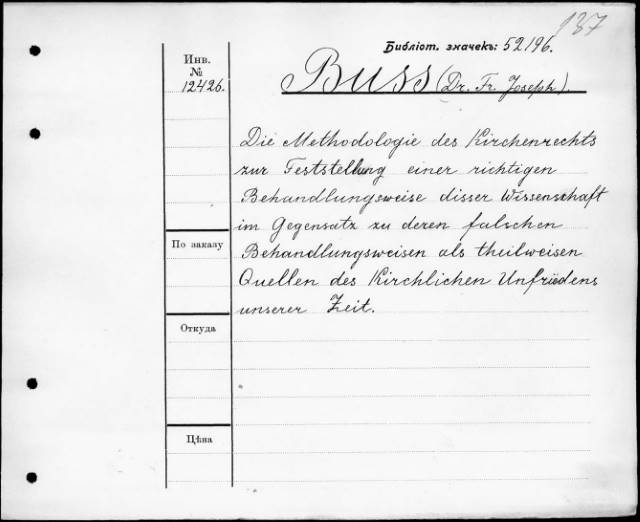 137
Библіот. значекъ: 52196.
Инв.
№
12426.
Buss (Dr. Fr. Joseph).
Die Methodologie des Kirchenrechts
zur Feststellung einer richtigen
Behandlungsweise disser Wissenschaft
im Gegensatz zu deren falschen
Behandlungsweisen als theilweisen
Quellen des Kirchlichen Unfriedens
unserer Zeit.
По заказу
Откуда
Цѣна